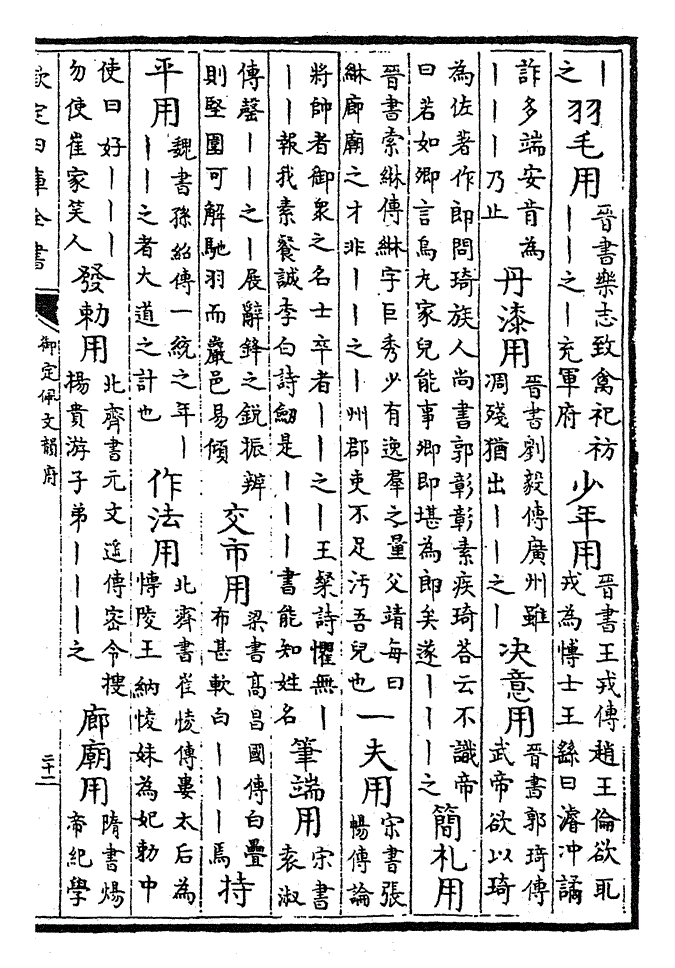 丨之羽毛用晉書樂志致禽祀祊丨丨之丨充軍府少年用晉書王戎傳趙王倫欲取戎為博士王繇曰濬沖譎
詐多端安肯為丨丨丨乃止丹漆用晉書劉毅傳廣州雖凋殘猶出丨丨之丨決意用晉書郭琦傳武帝欲以琦
為佐著作郎問琦族人尚書郭彰彰素疾琦荅云不識帝曰若如卿言烏丸家兒能事卿即堪為郎矣遂丨丨丨之簡札用
晉書索綝傳綝字巨秀少有逸羣之量父靖每曰綝廊廟之才非丨丨之丨州郡吏不足汚吾兒也一夫用宋書張暢傳論
將帥者御衆之名士卒者丨丨之丨王粲詩懼無丨丨丨報我素餐誠李白詩劒是丨丨丨書能知姓名筆端用宋書袁淑
傳罄丨丨之丨展辭鋒之銳振辨則堅圍可解馳羽而巖邑易傾交市用梁書高昌國傳白疊布甚軟白丨丨丨焉持
平用魏書孫紹傳一統之年丨丨丨之者大道之計也作法用北齊書崔㥄傳婁太后為博陵王納㥄妹為妃勅中
使曰好丨丨丨勿使崔家笑人發勅用北齊書元文遥傳宻令搜揚貴游子弟丨丨丨之廊廟用隋書煬帝紀學
欽定四庫全書
御定佩文韻府
二十二